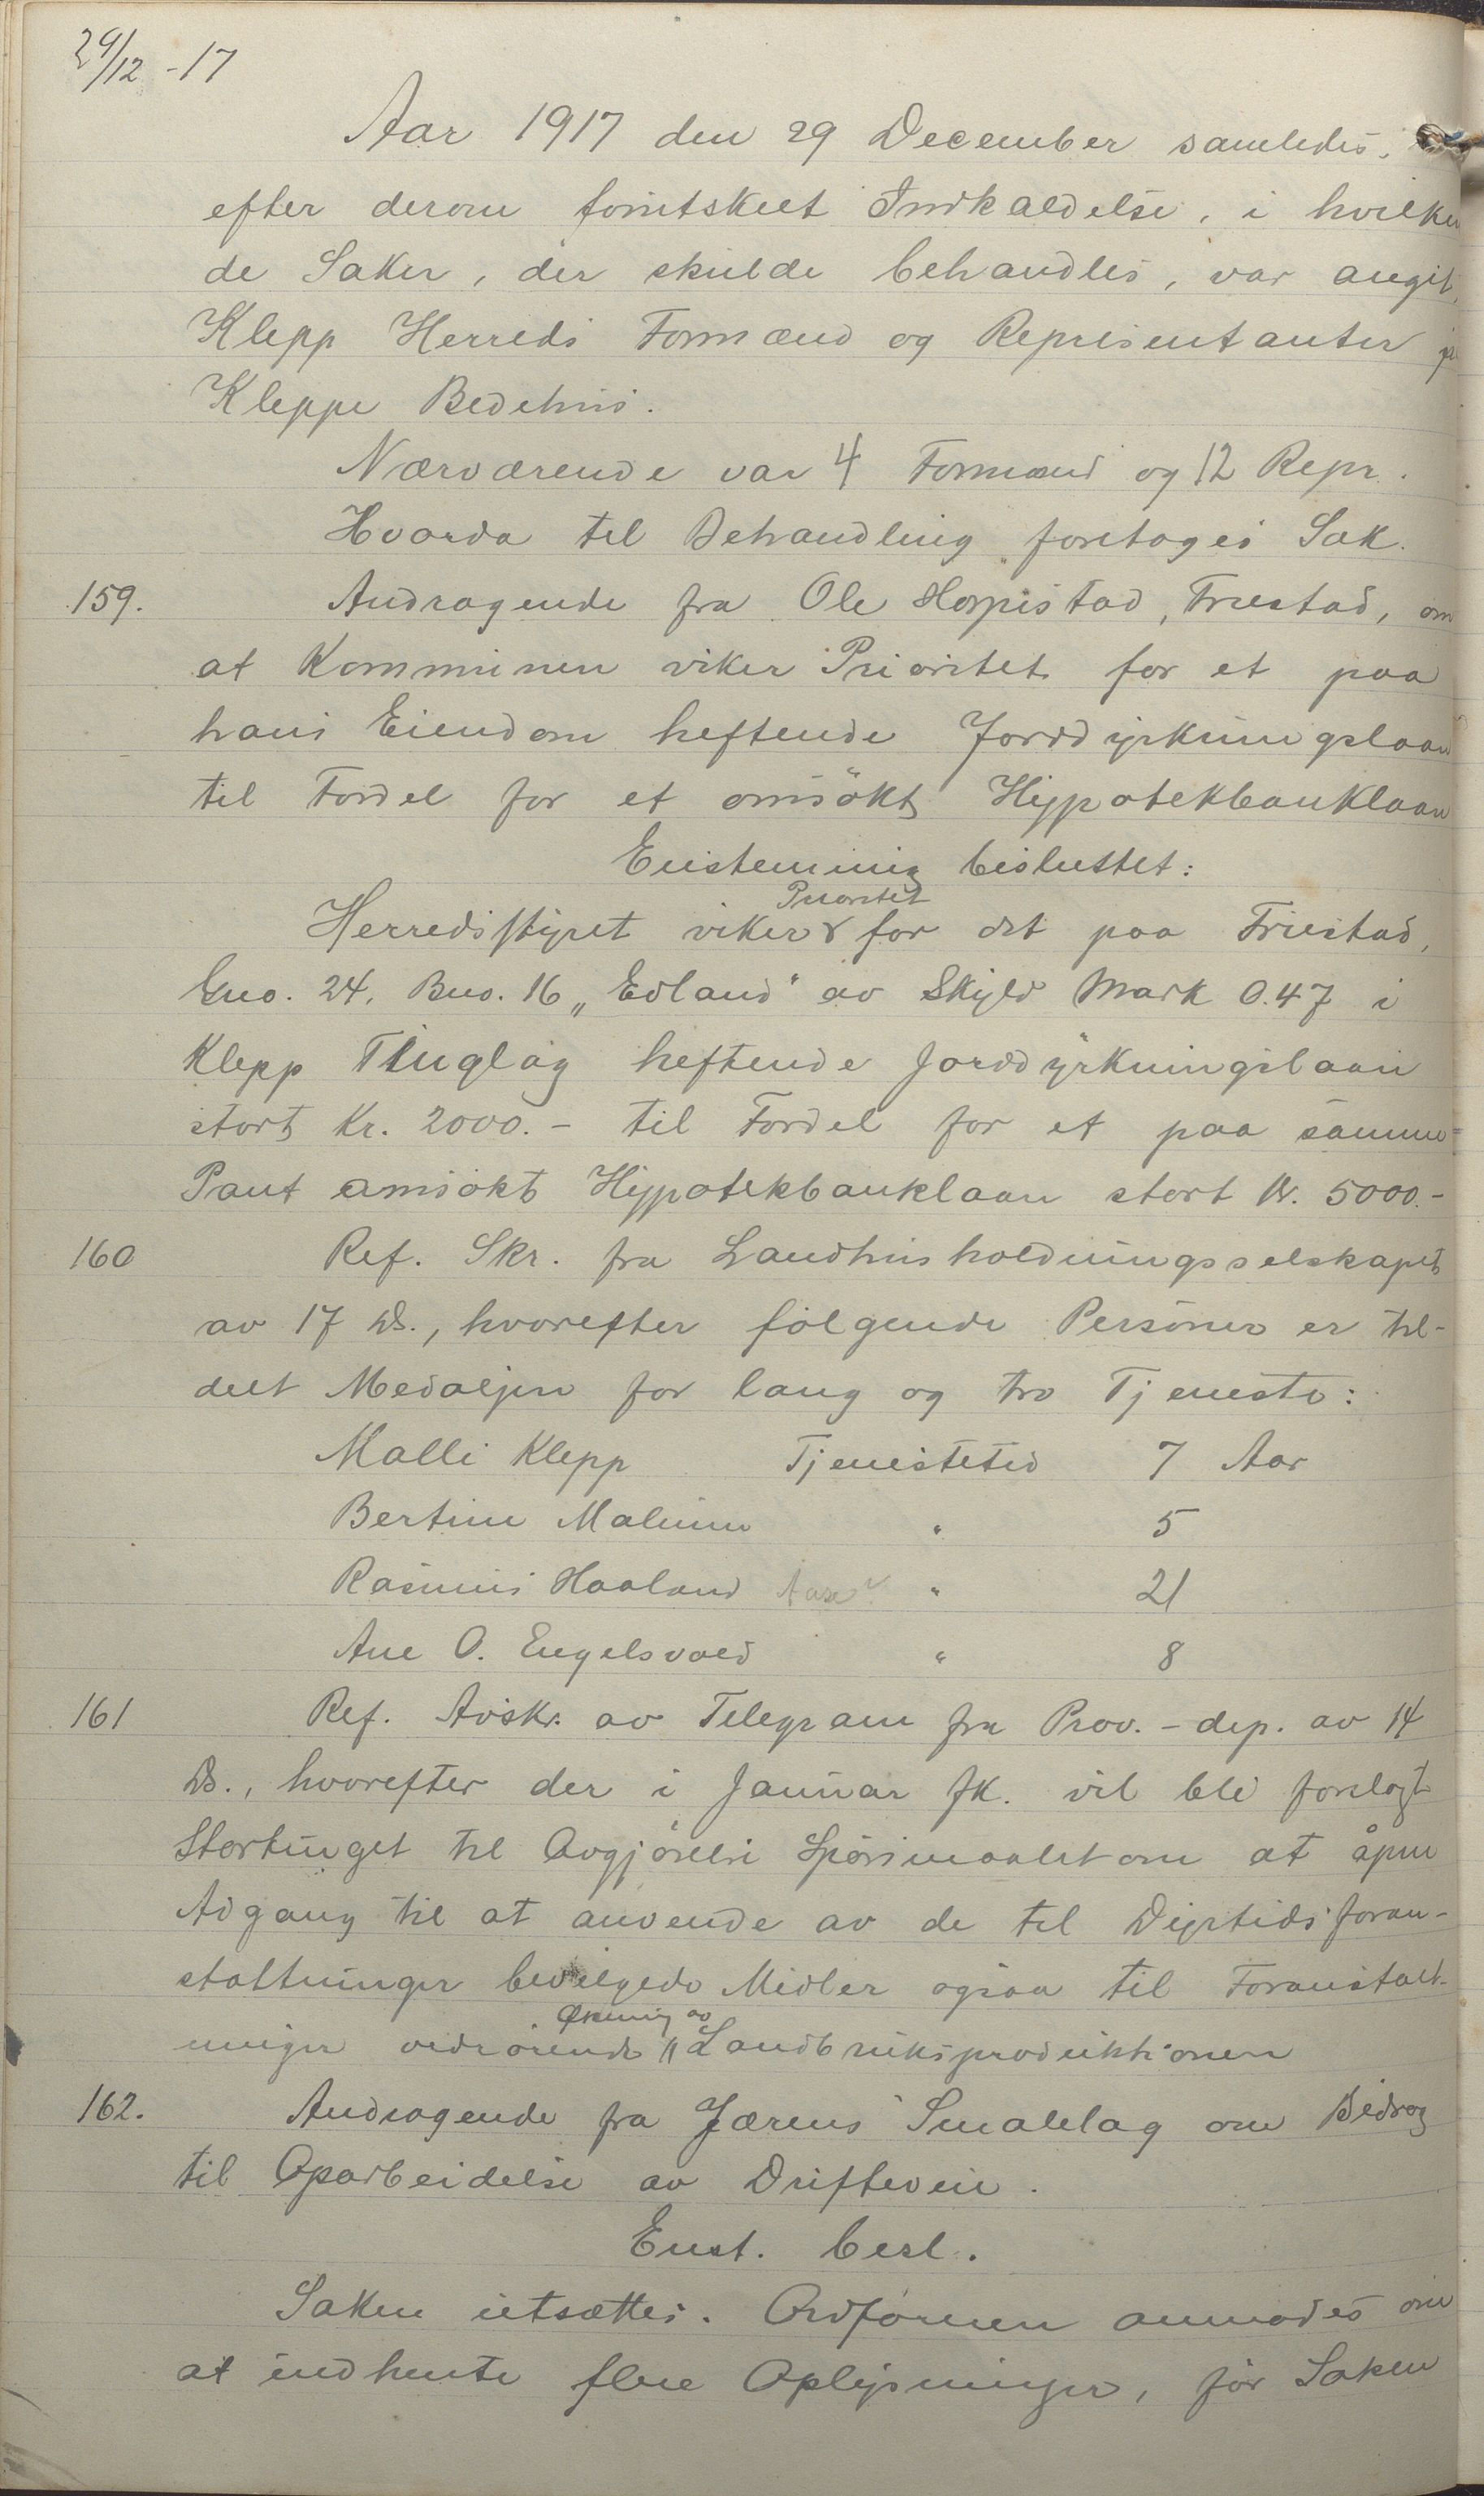 29/12 - 17
Aar 1917 den 29 December samledes,
efter derom forutskeet Indkaldelse, i hvilken
de Saker, der skulde behandles, var angit,
Klepp Herreds Formænd og Representanter paa
Kleppe Bedehus.
Nærværende var 4 Formænd og 12 Repr.
Hvorda til Behandling foretoges Sak.
159. Andragende fra Ole Horpestad, Friestad, om
at Kommunen viker Prioritet for et paa
hans Eiendom heftende Jorddyrkningslaan
til Fordel for et omsökt Hypotekbanklaan
Enstemmig besluttet:
Prioritet
Herredsstyret viker for det paa Friestad,
Gno. 24, Bno. 16 „Edland“ av Skyld Mark 0.47 i
Klepp Tinglag heftende Jorddyrkningslaan
stort Kr. 2000.- til Fordel for et paa samme
Pant omsökt Hypotekbanklaan stort Kr. 5000.-
160 Ref. Skr. fra Landhusholdningsselskapet
av 17 ds., hvorefter følgende Personer er til-
delt Medaljen for lang og tro Tjeneste:
Malli Klepp Tjenestetid 7 Aar
Bertine Malmin " 5
Rasmus Haaland " 21
Ane O. Engelsvold " 8
161 Ref. Avskr. av Telegram fra Prov.-dep. av 14
ds., hvorefter der i Januar fk. vil bli forelagt
Stortinget til Avgjörelse Spörsmaalet om at åpne
Adgang til at anvende av de til Dyrtidsforan-
staltninger bevilgede Midler ogsaa til Foranstalt-
Økning av
ninger vedrörende Landbruksproduktionen
162. Andragende fra Jærens Smalelag om Bidrag
til Oparbeidelse av Driftevei.
Enst. besl.
Saken utsættes. Ordføreren anmodes om
at indhente flere Oplysninger, før Saken